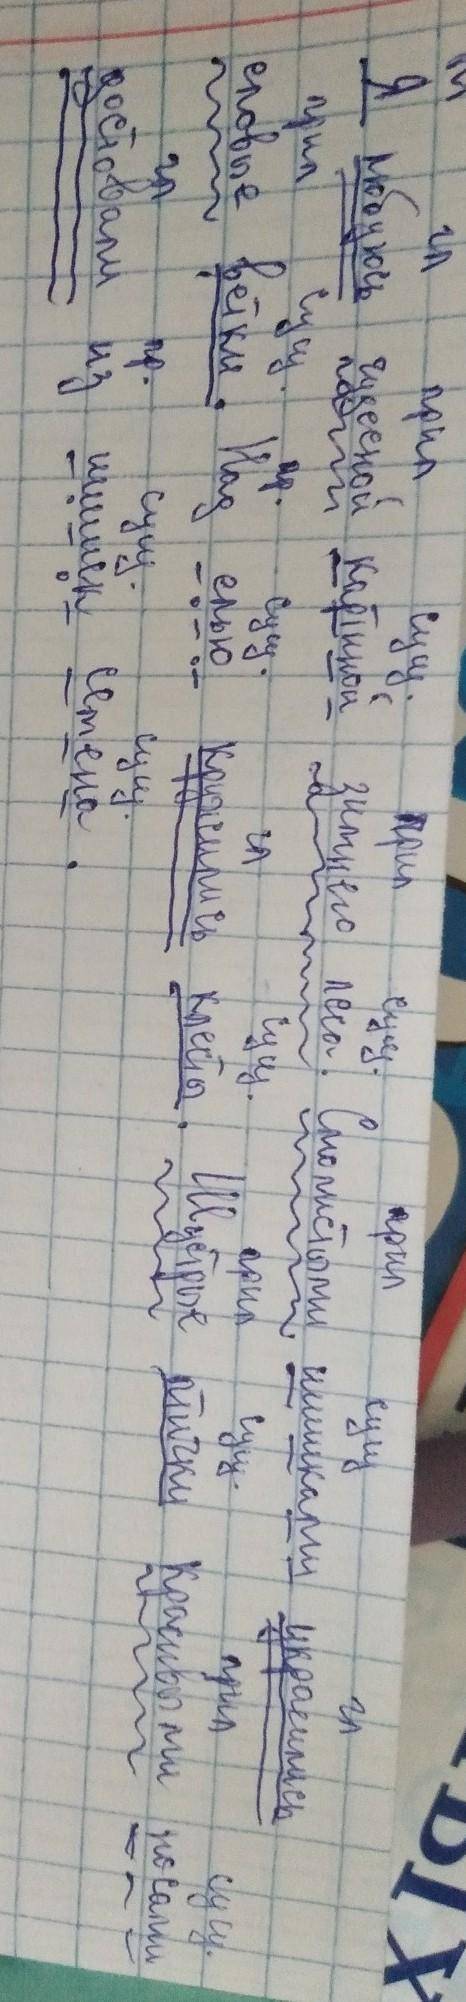 м гл прил сущ. прил сущ. прил сущ гл
Я любуюсь чудесной картиной зимнего леса. Смолистыми шишками украсились
прил сущ. пр. сущ. гл сущ. прил сущ. прил сущ.
еловые ветки. Над елью кружились клесты. Шустрые птички красивыми носами
гл пр. сущ. сущ.
достовали из шишек семена.
ЫХ